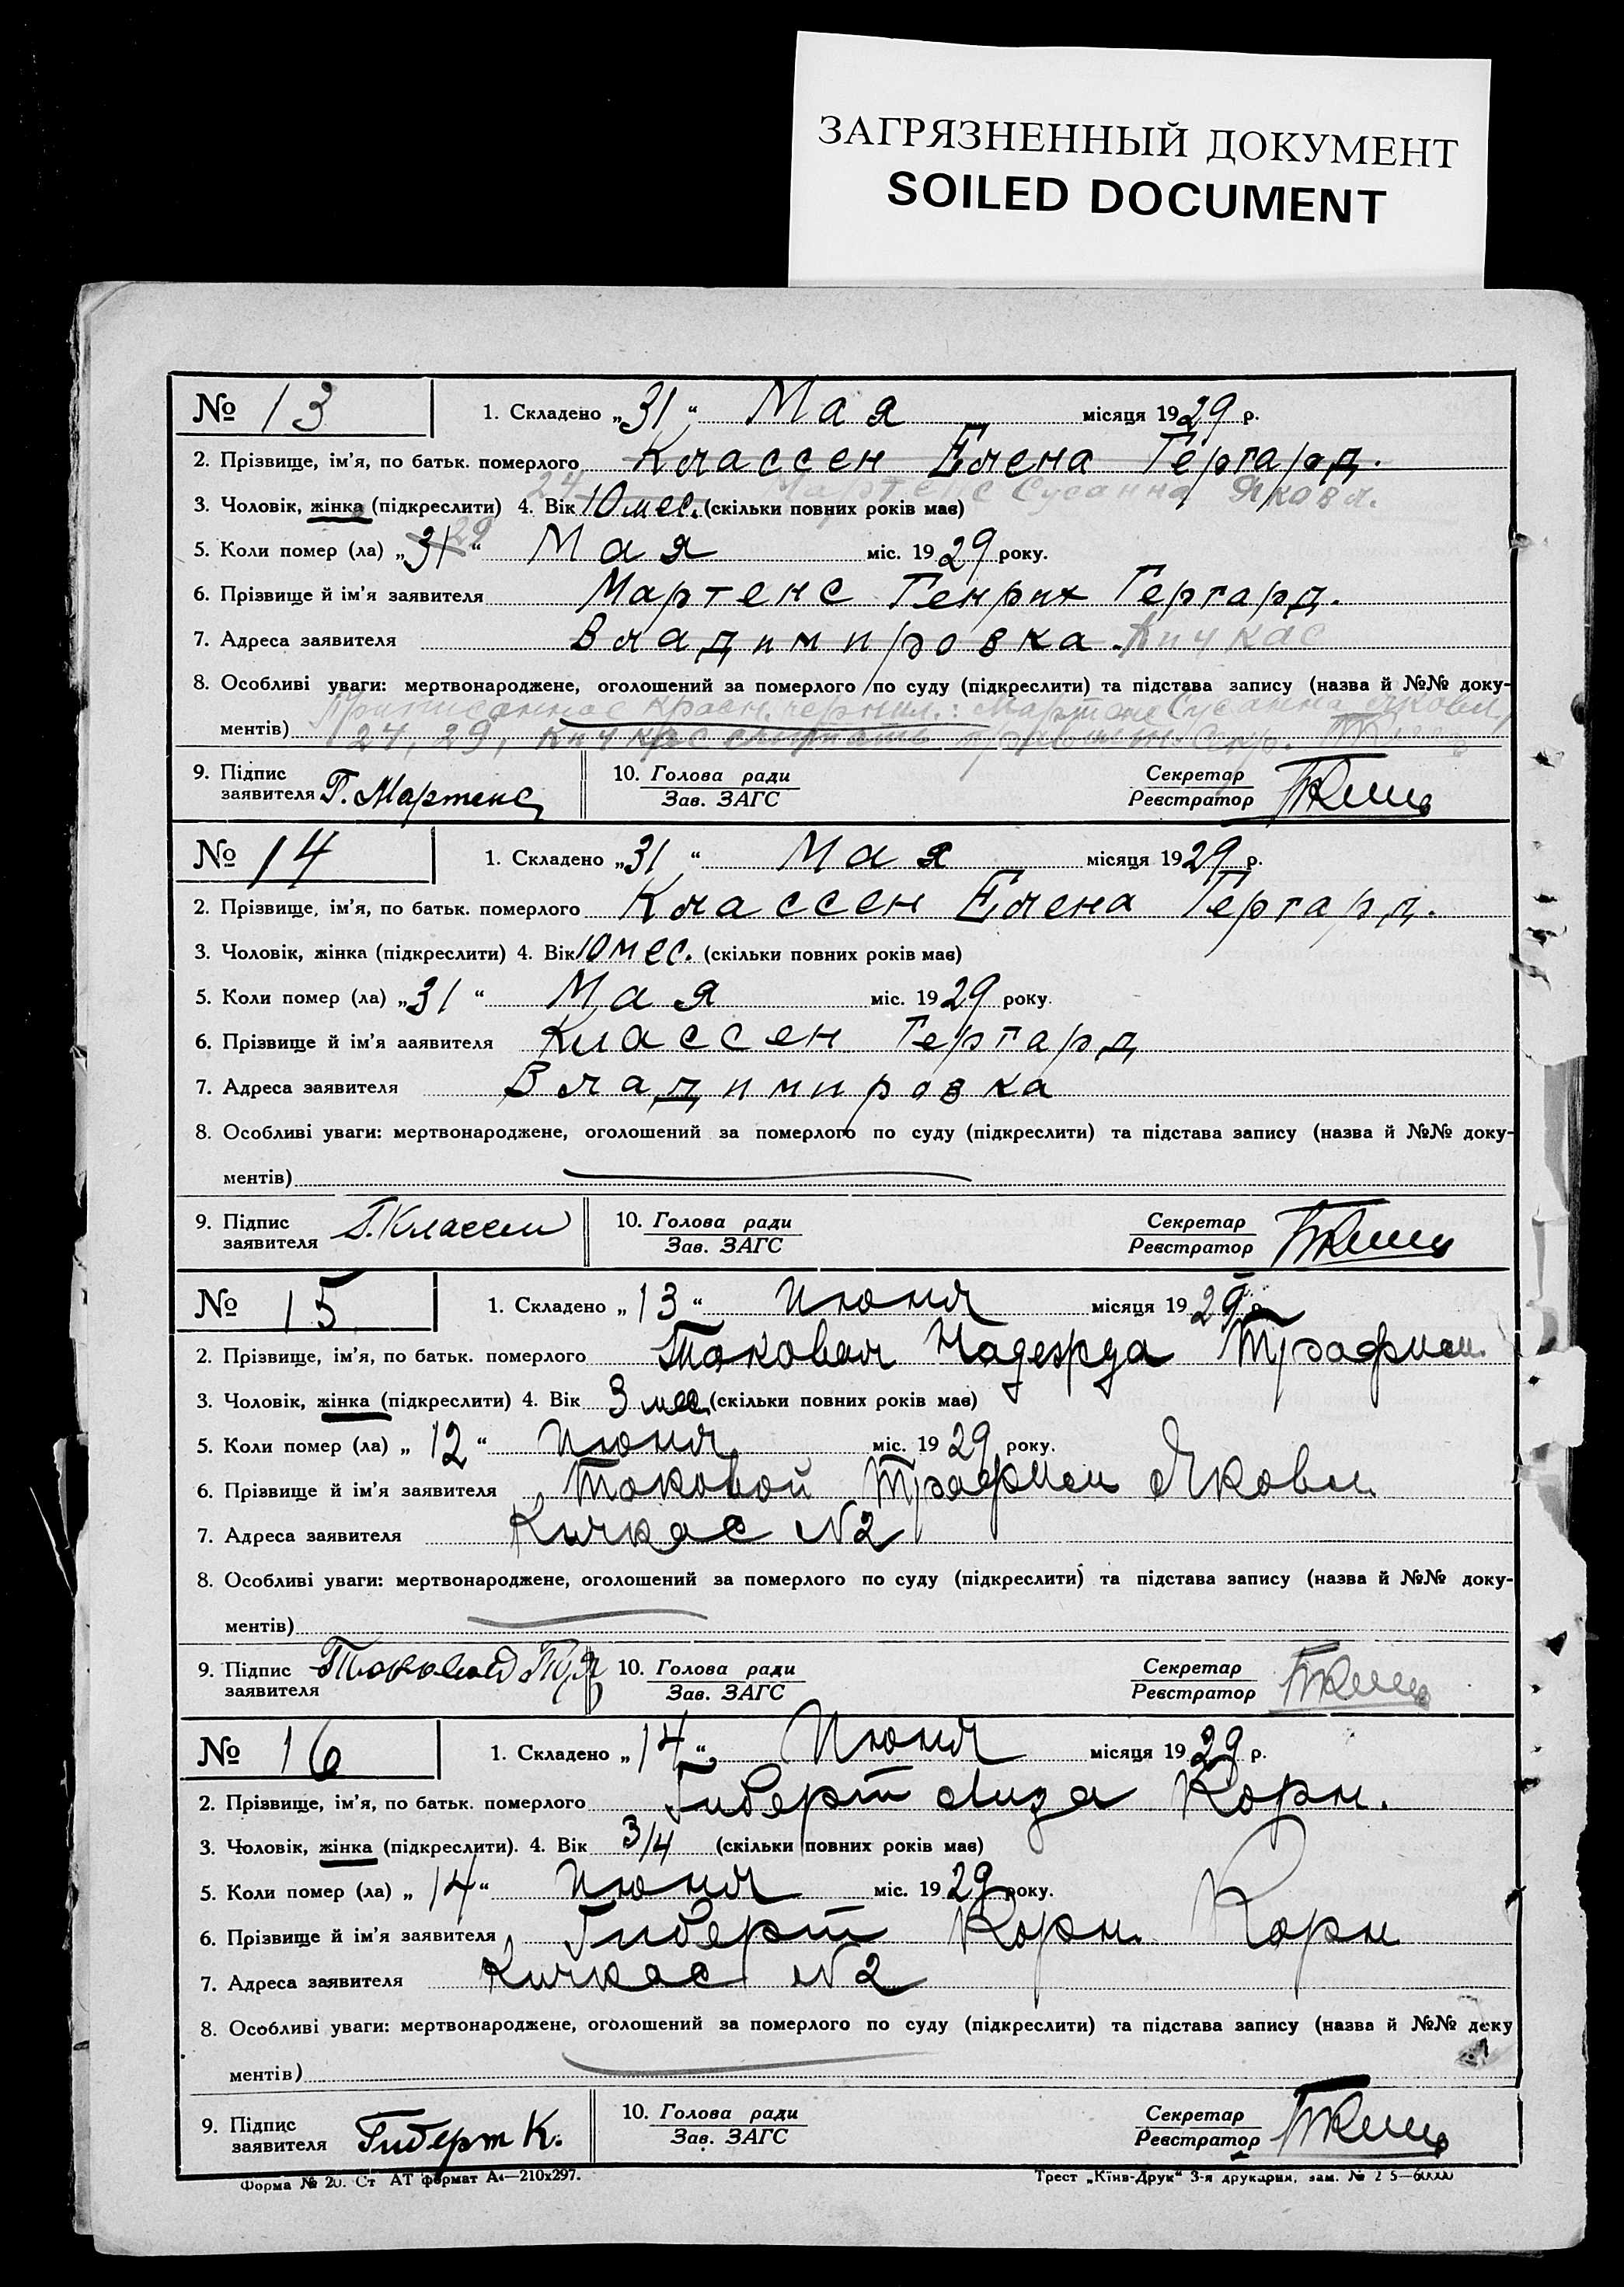 ЗАГРЯЗНЕННЫЙ ДОКУМЕНТ
SOILED DOCUMENT
№ 13 1. Складено „31“ Мая місяця 1929 р.
2. Прізвище, ім'я, по батьк. померлого Классен Елена Гергард.
24 Мартенс Сусанна Яковл.
3. Чоловік, жінка (підкреслити) 4. Вік 10 мес. (скільки повних років має)
5. Коли помер (ла) „31“ 29 Мая міс. 1929 року.
6. Прізвище й ім'я заявителя Мартенс Генрих Гергард.
7. Адреса заявителя Владимировка Кичкас
8. Особливі уваги: мертвонароджене, оголошений за померлого по суду (підкреслити) та підстава запису (назва й №№ доку-
Приписанное красн. чернил.: Мартенс Сусанна Яковл.,
ментів) 24, 29, Кичкас считать правильн. Секр.
9. Підпис заявителя Г. Мартенс 10. Голова ради Зав. ЗАГС Секретар Реєстратор
№ 14 1. Складено „31“ Мая місяця 1929 р.
2. Прізвище, ім'я, по батьк. померлого Классен Елена Гергард.
3. Чоловік, жінка (підкреслити) 4. Вік 10 мес. (скільки повних років має)
5. Коли помер (ла) „31“ Мая міс. 1929 року.
6. Прізвище й ім'я ааявителя Классен Гергард
7. Адреса заявителя Владимировка
8. Особливі уваги: мертвонароджене, оголошений за померлого по суду (підкреслити) та підстава запису (назва й №№ доку-
ментів)
9. Підпис заявителя Г. Классен 10. Голова ради Зав. ЗАГС Секретар Реєстратор
№ 15 1. Складено „13“ Июня місяця 1929 р.
2. Прізвище, ім'я, по батьк. померлого Токовая Надежда Трофим.
3. Чоловік, жінка (підкреслити) 4. Вік 3 мес. (скільки повних років має)
5. Коли помер (ла) „12“ Июня міс. 1929 року.
6. Прізвище й ім'я заявителя Токовой Трофим Яковл.
7. Адреса заявителя Кичкас N2
8. Особливі уваги: мертвонароджене, оголошений за померлого по суду (підкреслити) та підстава запису (назва й №№ доку-
ментів)
9. Підпис заявителя Токовой 10. Голова ради Зав. ЗАГС Секретар Реєстратор
№ 16 1. Складено „14“ Июня місяця 1929 р.
2. Прізвище, ім'я, по батьк. померлого Гиберт Лиза Корн.
3. Чоловік, жінка (підкреслити). 4. Вік 3/4 (скільки повних років має)
5. Коли помер (ла) „14“ Июня міс. 1929 року.
6. Прізвище й ім'я заявителя Гиберт Корн. Корн
7. Адреса заявителя Кичкас N2
8. Особливі уваги: мертвонароджене, оголошений за померлого по суду (підкреслити) та підстава запису (назва й №№ доку
ментів)
9. Підпис заявителя Гиберт К. 10. Голова ради Зав. ЗАГС Секретар Реєстратор
Форма № 20. Ст АТ формат А4—210х297. Трест „Київ-Друк“ 3-я друкарня, зам. №